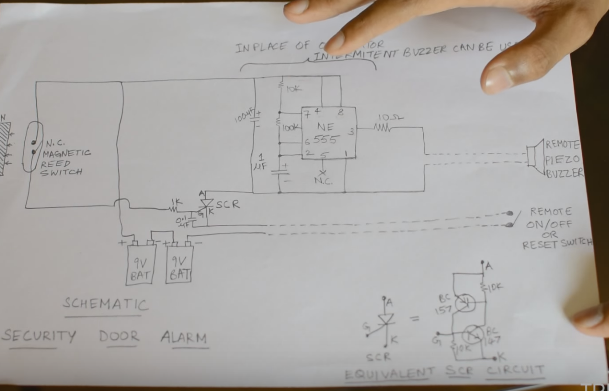 IN PLACE OF
INTERMITENT BUZZER CAN BE
N
10K
100µF
7 4 8
100K
NE
555
3
10Ω
6
2 5 1
1
µF
N.C
N.C.
MAGNETIC
REED
SWITCH
REMOTE
PIEZO
BUZZER
A
1K
SCR
G K
REMOTE
ON/OFF
OR
RESET SWITCH
+ - + -
9V
BAT
9V
BAT
SCHEMATIC
SECURITY DOOR ALARM
A
G
K
SCR
=
A
10K
BC
157
G
BC
147
10K
K
EQUIVALENT SCR CIRCUIT